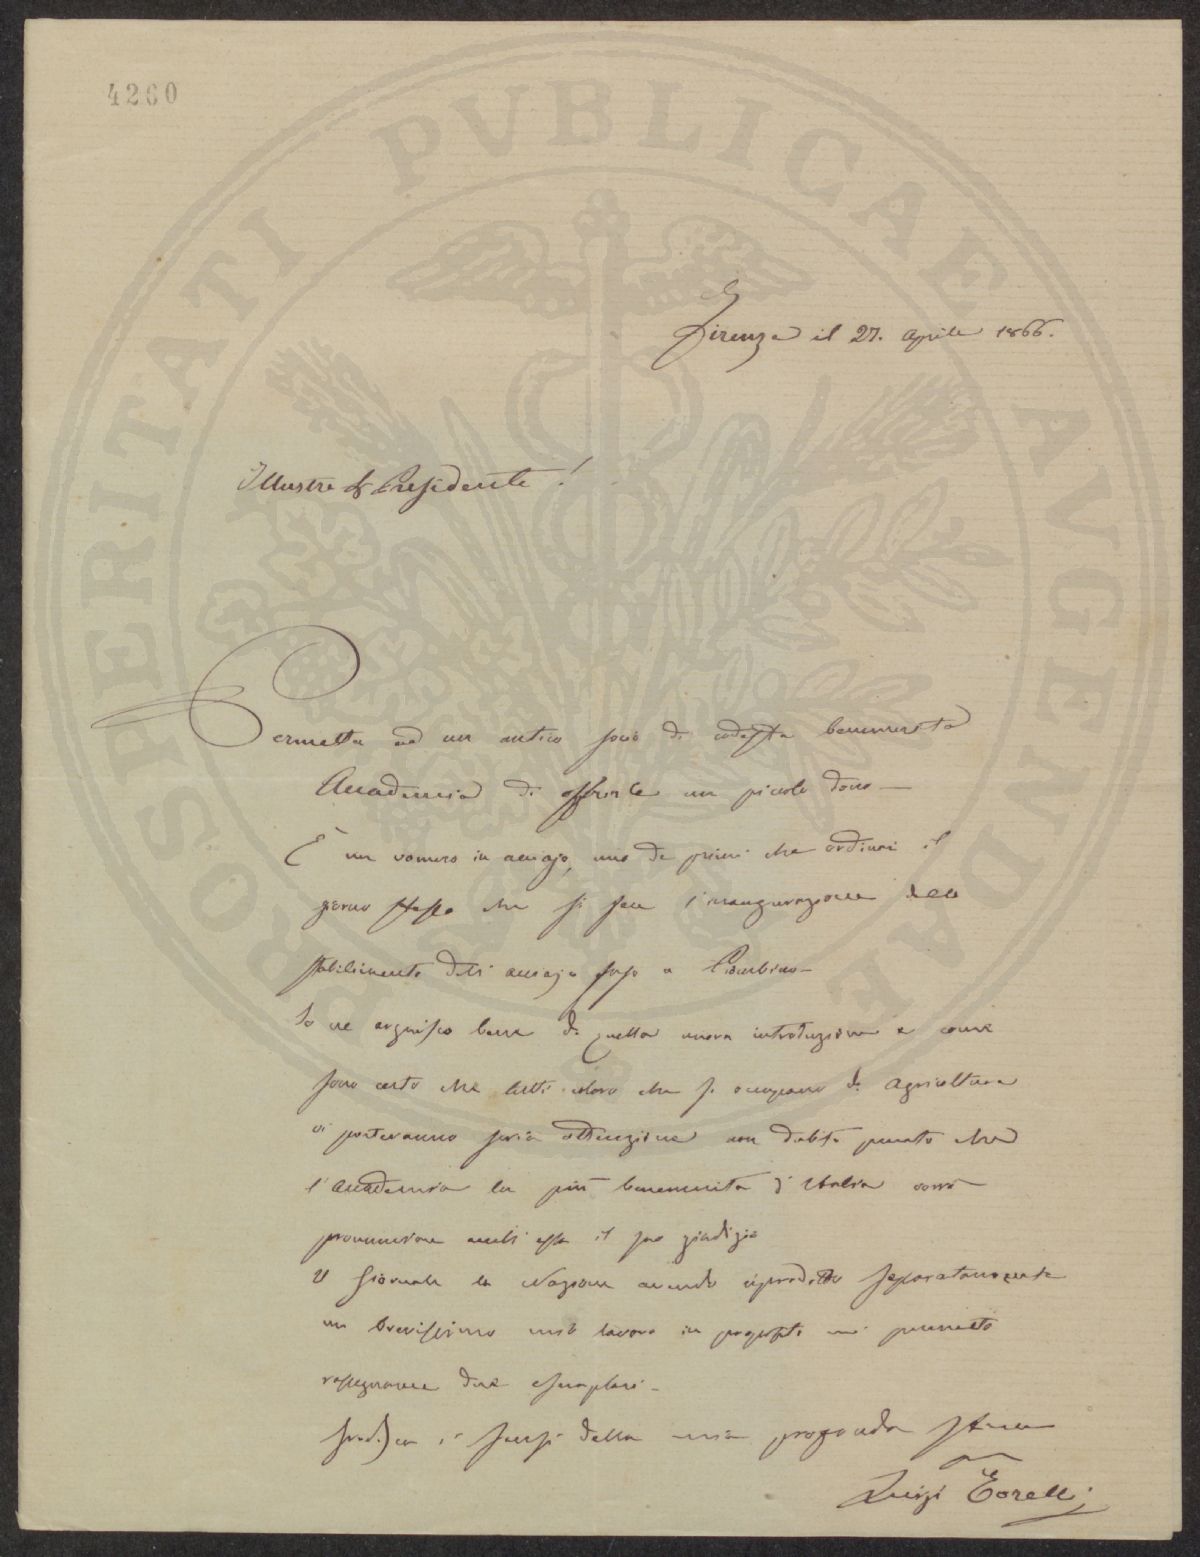 4260
PROSPERITATI PVBLICAE AVGENDAE
Firenze il 27. Aprile 1866.
Illustre Sr Presidente!
Permetta ad un antico socio di codesta benemerita
Accademia di offrirle un piccolo dono —
È un vomero in acciajo, uno de primi che ordinai il
giorno stesso che si fece l'inaugurazione dello
stabilimento dell'acciajo fuso a Piombino —
Io ne arguisco bene di quella nuova introduzione e come
sono certo che tutti coloro che si occupano di agricoltura
vi porteranno seria attenzione non dubito punto che
l'accademia la più benemerita d'Italia vorrà
pronunciare anch'essa il suo giudizio
Il Giornale la Nazione avendo riprodotto separatamente
un brevissimo mio lavoro in proposito mi permetto
rassegnarne due esemplari —
Gradisca i sensi della mia profonda stima
Luigi Torelli